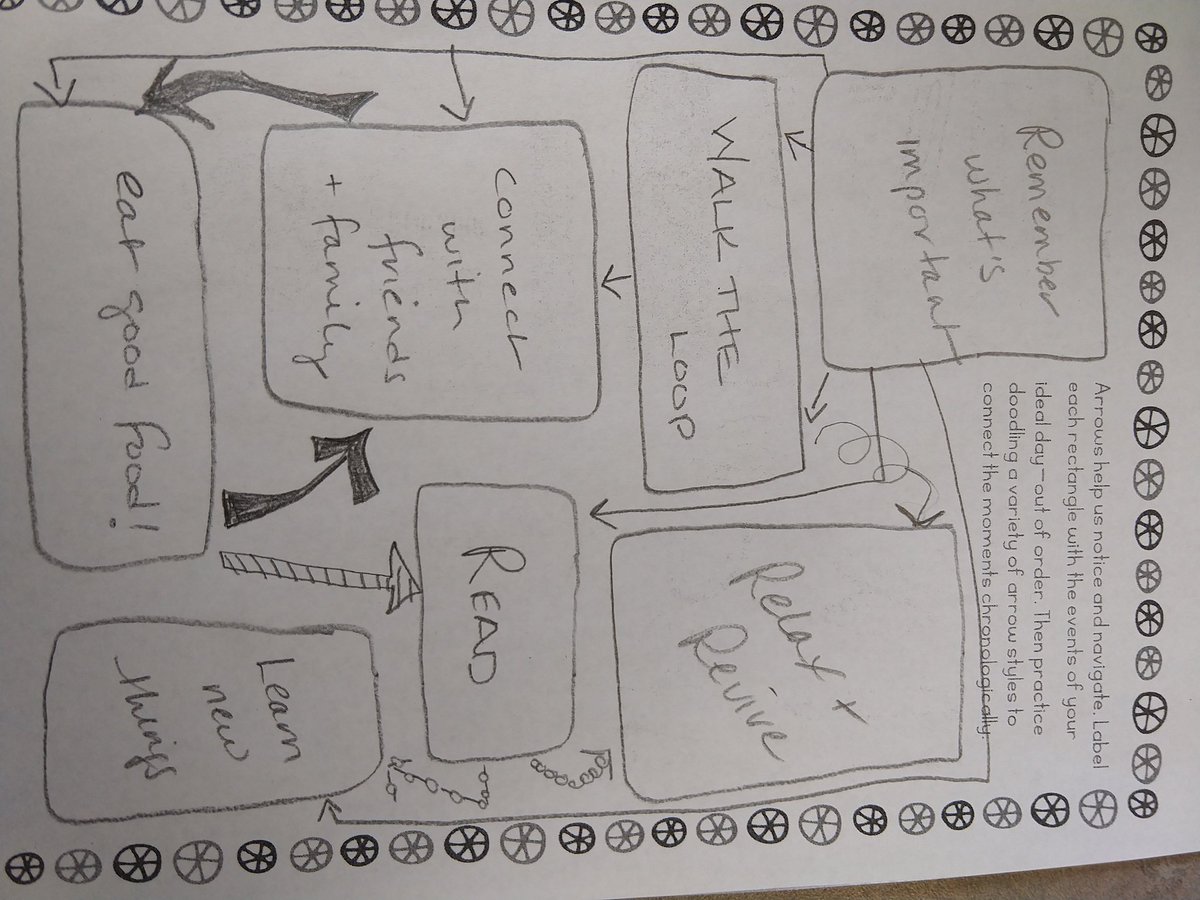 Arrows help us notice and navigate. Label
each rectangle with the events of your
ideal day—out of order. Then practice
doodling a variety of arrow styles to
connect the moments chronologically.
Remember
what's
important
WALK THE
LOOP
Relax +
Revive
connect
with
friends
+ family
READ
eat good food!
Learn
new
things